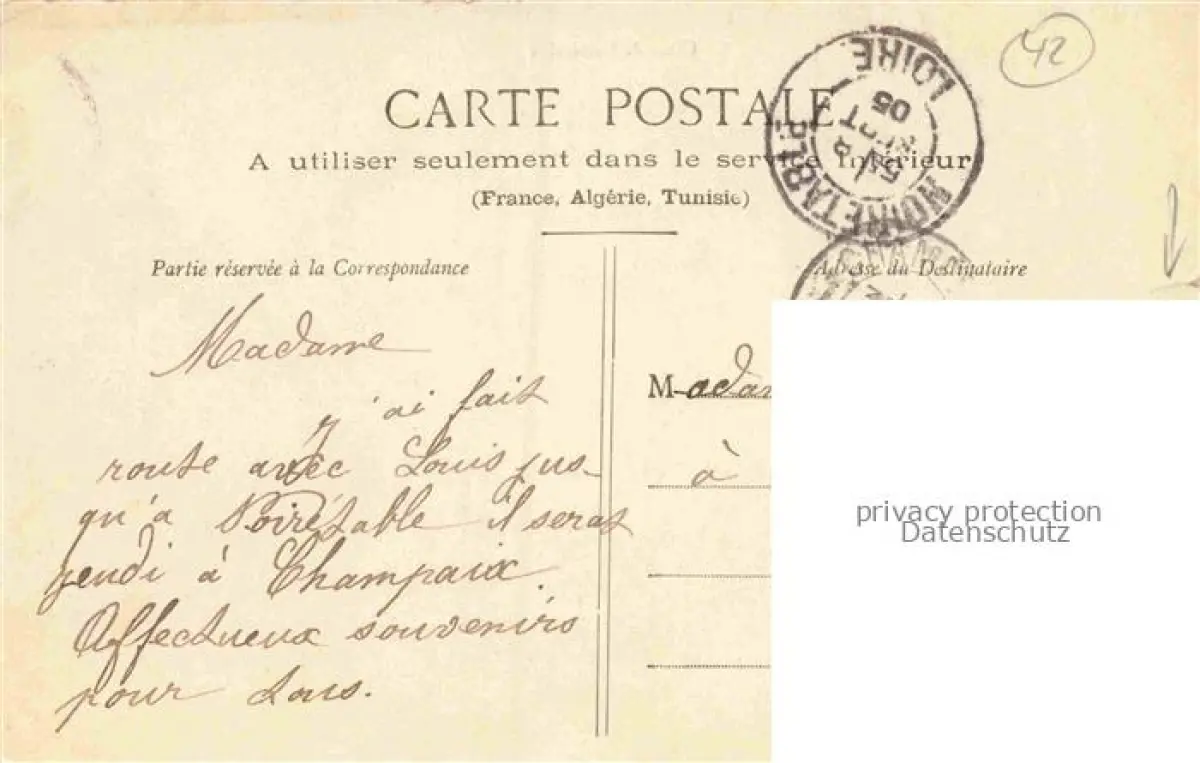 42
CARTE POSTALE
A utiliser seulement dans le service intérieur
(France, Algérie, Tunisie)
NOIRETABLE
LOIRE
5 / 8
SEPT
05
Partie réservée à la Correspondance
Adresse du Destinataire
Madame
j'ai fait
route avec Louis jus-
qu'a Noirétable il serat
jeudi à Champaix.
Affectueux souvenirs
pour tous.
Madam
à
privacy protection
Datenschutz